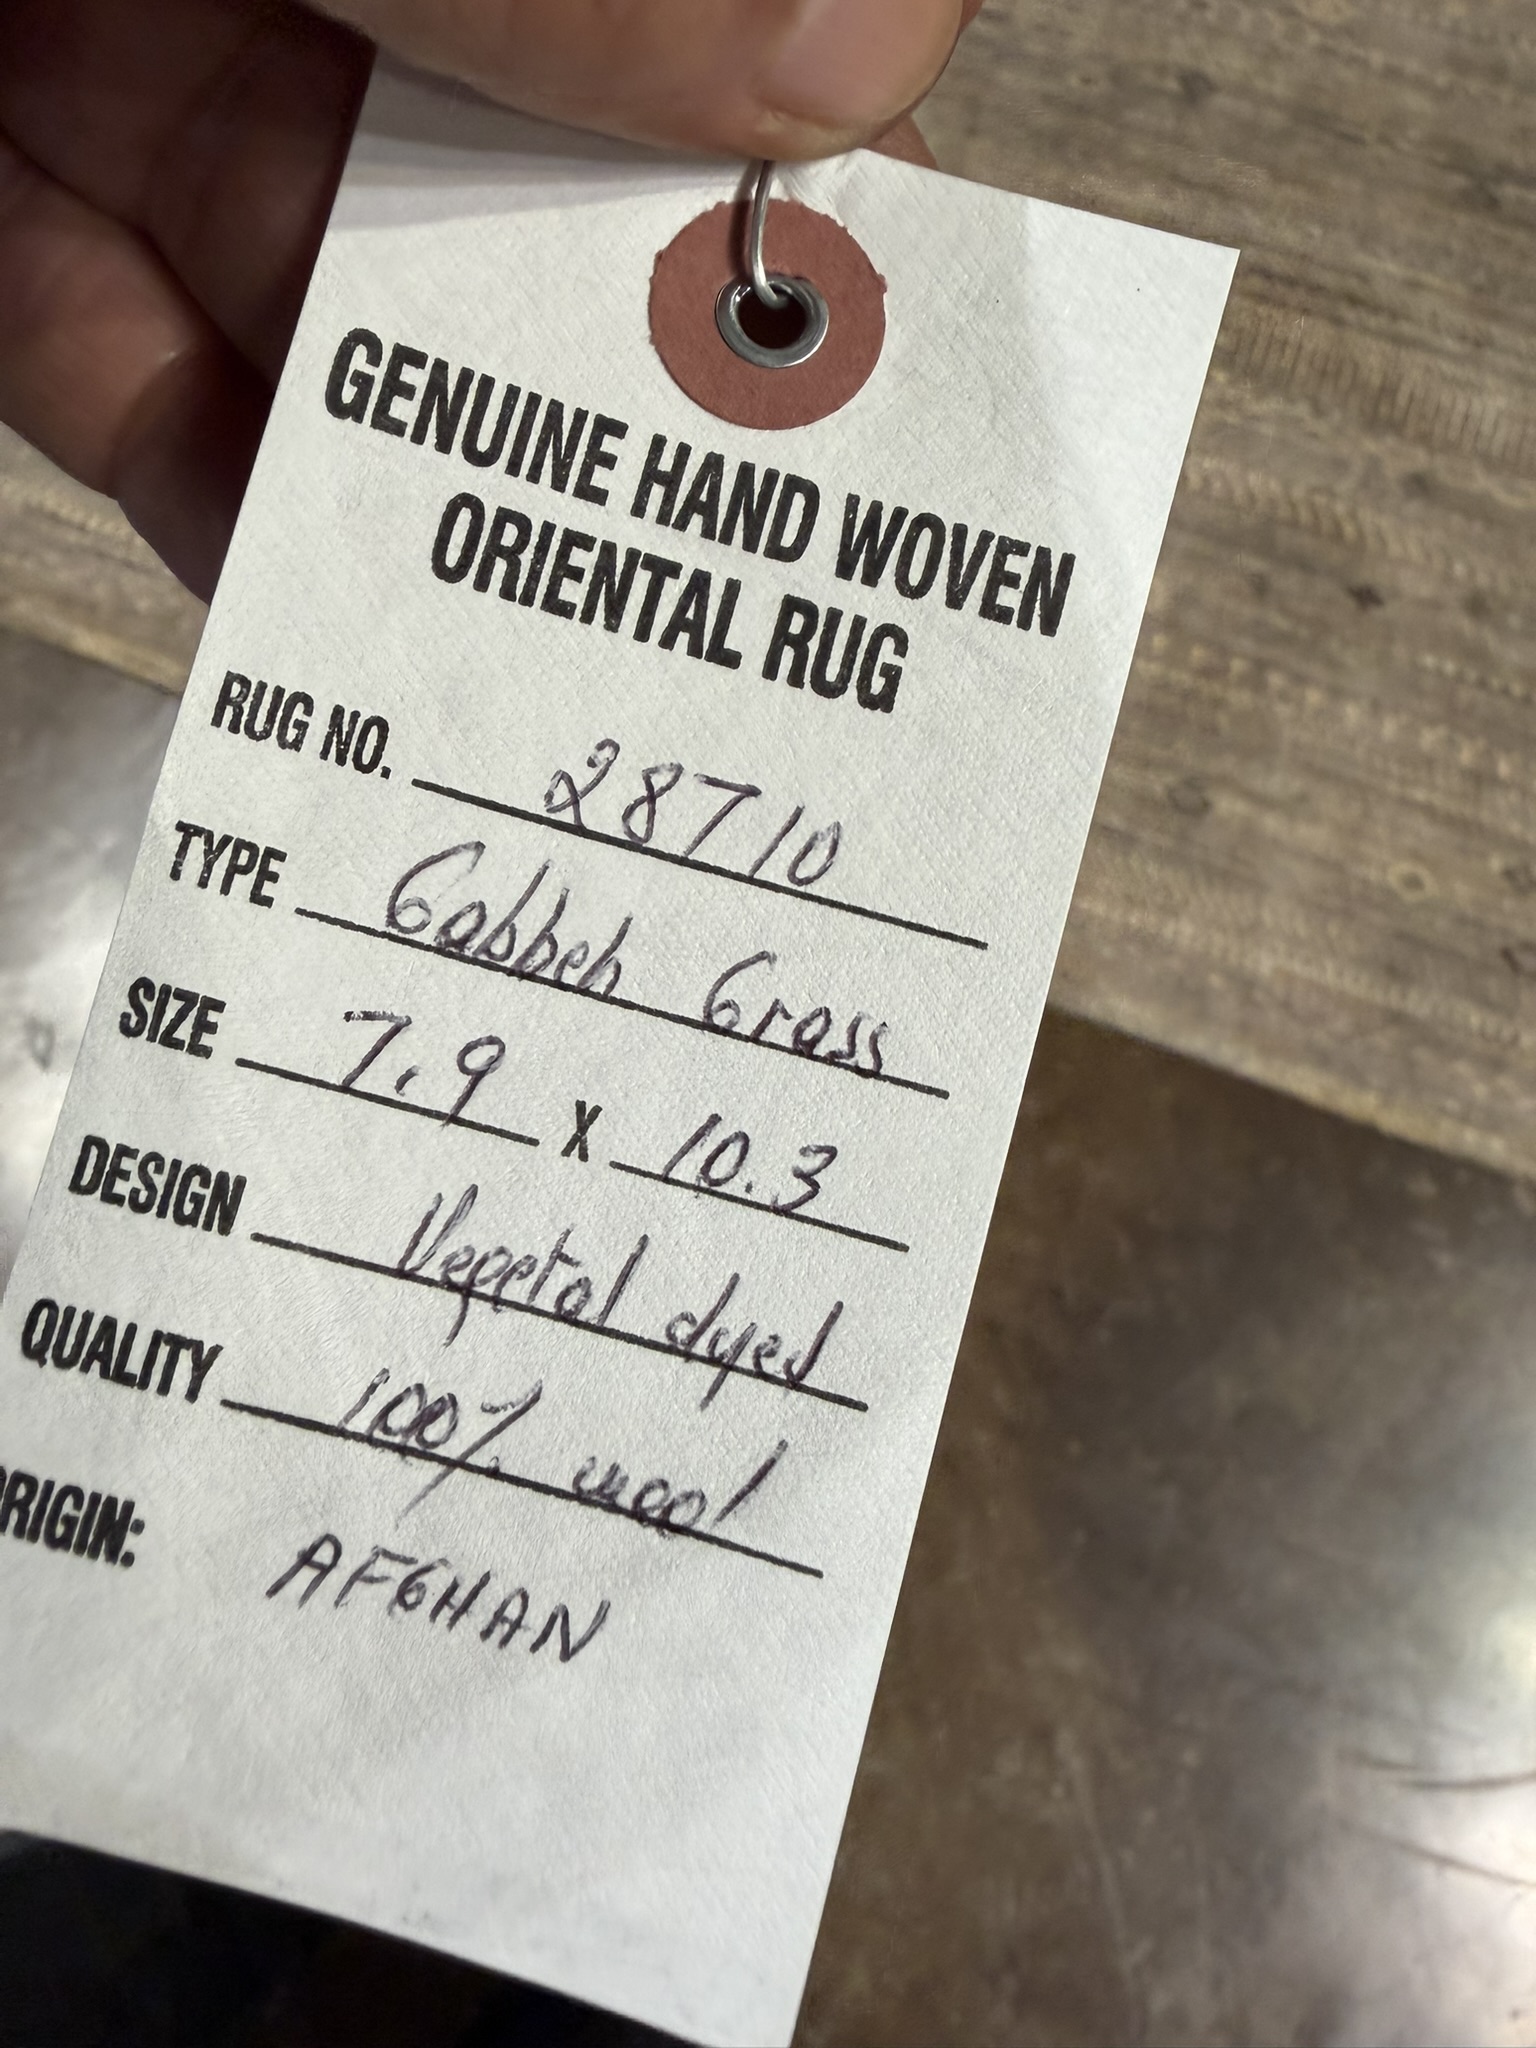 GENUINE HAND WOVEN
ORIENTAL RUG
RUG NO. 28710
TYPE Gabbeh Grass
SIZE 7.9 X 10.3
DESIGN Vegetal dyed
QUALITY 100% wool
RIGIN: AFGHAN